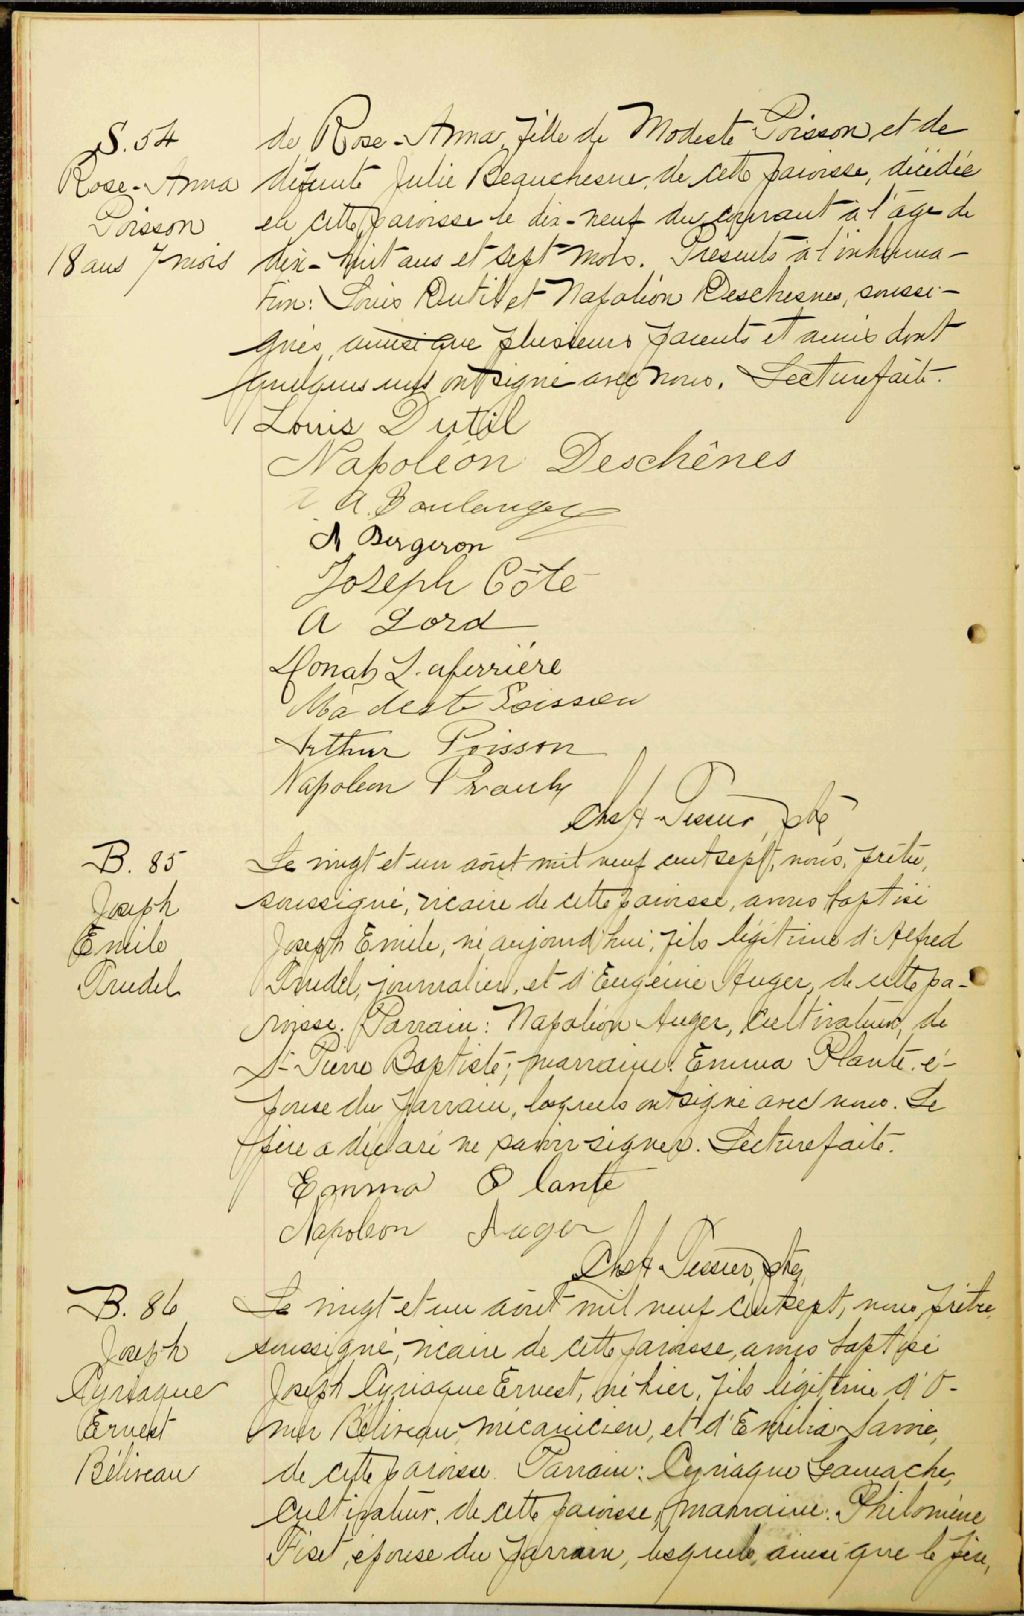 S. 54
Rose-Anna
Poisson
18 ans 7 mois
de Rose-Anna, fille de Modeste Poisson et de
défunte Julie Beauchesne, de cette paroisse, décédée
en cette paroisse le dix-neuf du courant à l'âge de
dix-huit ans et sept mois. Présents à l'inhuma-
tion: Louis Dutil et Napoléon Deschesnes, soussi-
gnés, ainsi que plusieurs parents et amis dont
quelques uns ont signé avec nous. Lecture faite.
Louis Dutil
Napoléon Deschênes
A. Boulanger
N Bergeron
Joseph Côté
A Lord
Donat Laferrière
Modeste Poisson
Arthur Poisson
Napoleon Proulx
Chs H Tessier, ptre
B. 85
Joseph
Emile
Trudel
Le vingt et un août mil neuf cent sept, nous, prêtre,
soussigné, vicaire de cette paroisse, avons baptisé
Joseph Emile, né aujourd'hui, fils légitime d'Alfred
Trudel, journalier, et d'Eugénie Auger, de cette pa-
roisse. Parrain: Napoléon Auger, cultivateur, de
St-Pierre Baptiste; marraine: Emma Plante, é-
pouse du parrain, lesquels ont signé avec nous. Le
père a déclaré ne savoir signer. Lecture faite.
Emma Plante
Napoleon Auger
Chs H Tessier, ptre,
B. 86
Joseph
Cyriaque
Ernest
Béliveau
Le vingt et un août mil neuf cent sept, nous, prêtre
soussigné, vicaire de cette paroisse, avons baptisé
Joseph Cyriaque Ernest, né hier, fils légitime d'O-
mer Béliveau, mécanicien, et d'Emilia Savoie,
de cette paroisse. Parrain: Cyriaque Gamache,
cultivateur, de cette paroisse; marraine: Philomène
Fiset, épouse du parrain, lesquels, ainsi que le père,